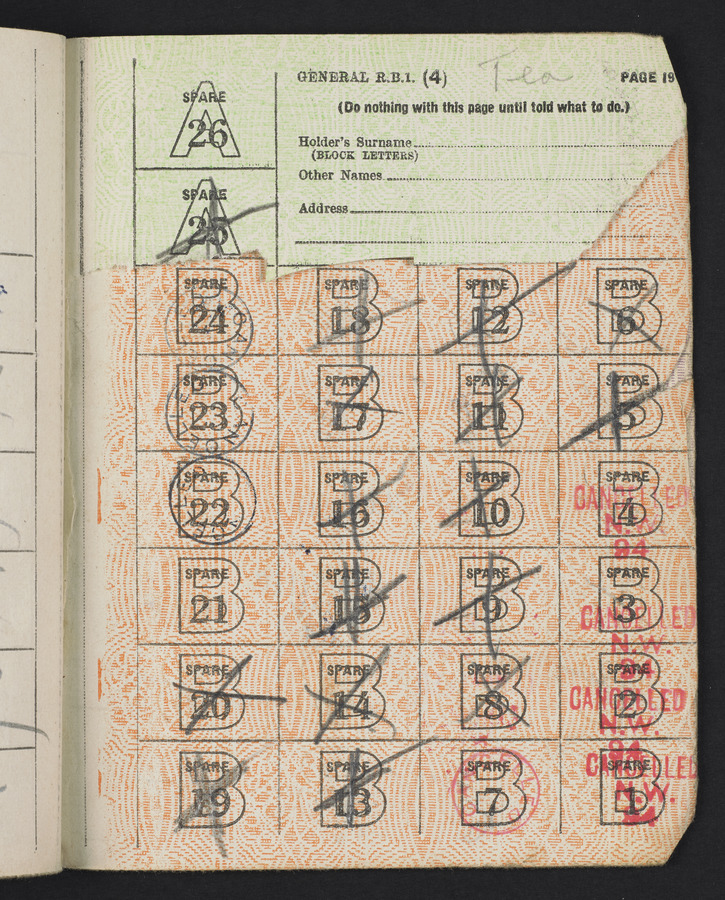 GENERAL R.B.1. (4) Tea PAGE 19
(Do nothing with this page until told what to do.)
Holder's Surname
(BLOCK LETTERS)
Other Names
Address
SPARE A 26
SPARE A 25
SPARE B 24 SPARE B 18 SPARE B 12 SPARE B 6
SPARE B 23 SPARE B 17 SPARE B 11 SPARE B 5
SPARE B 22 SPARE B 16 SPARE B 10 SPARE B 4
CANCELLED
N.W.
94
SPARE B 21 SPARE B 15 SPARE B 9 SPARE B 3
CANCELLED
N.W.
94
SPARE B 20 SPARE B 14 SPARE B 8 SPARE B 2
CANCELLED
N.W.
94
SPARE B 19 SPARE B 13 SPARE B 7 SPARE B 1
CANCELLED
N.W.